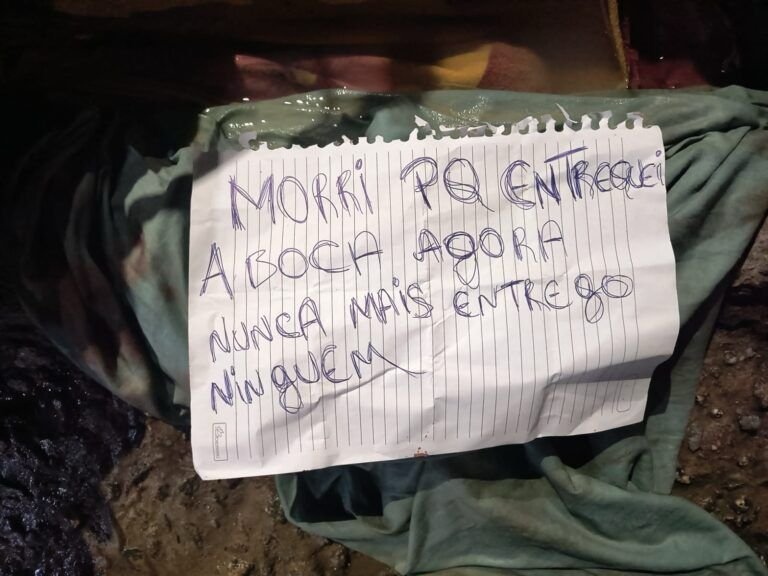 MORRi PQ ENTREGUEi
A BOCA AgORA
NUNCA MAiS ENTREgO
NiNgUEM